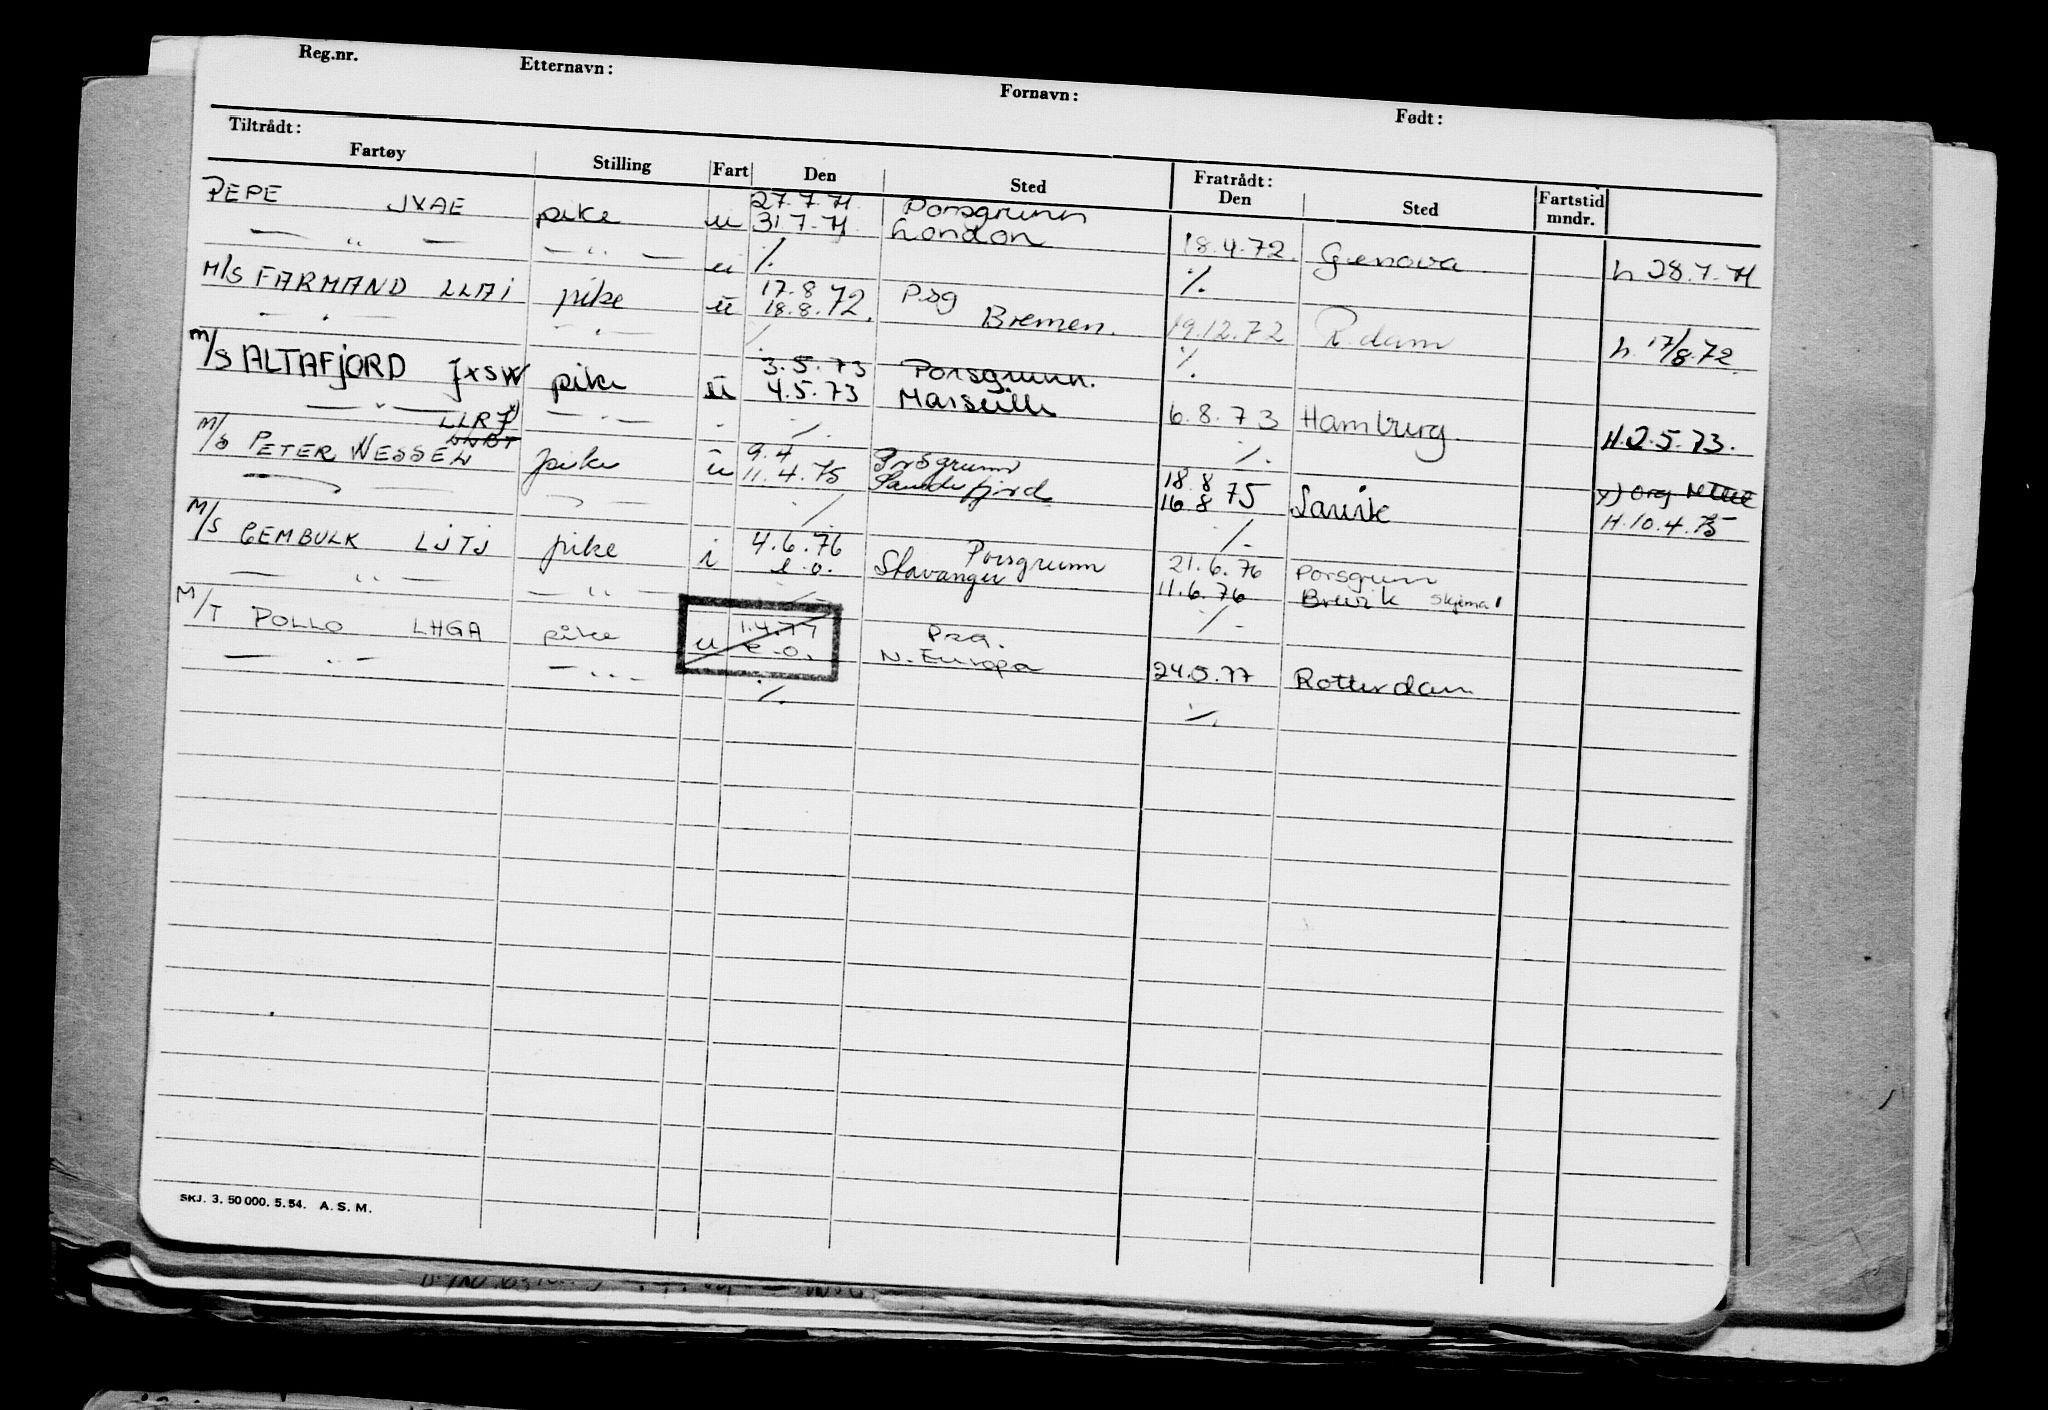 Reg.nr. Etternavn: Fornavn: Født:
Tiltrådt: Fratrådt:
Fartøy Stilling Fart Den Sted Den Sted Fartstid mndr.
PEPE JXAE pike u 27.7.71 Porsgrunn
31.7.71 London 18.4.72. Genova h 28.7.71
— " — — " — u ./. ./.
M/S FARMAND LLAI pike u 17.8 72 Psg
18.8.72. Bremen. 19.12.72 R.dam h. 17/8.72.
— " — — " — ./. ./.
M/S ALTAFJORD JXSW pike u 3.5.73 Porsgrunn.
4.5.73 Marseille 6.8.73 Hamburg. H.2.5.73.
— " — — " — ./. ./.
LLRJ
M/S PETER WESSEL pike u 9.4 Porsgrunn 18.8
11.4.75 Sandefjord 16.8 75 Larvik H.10.4.75
./. ./.
M/S GEMBULK LJTJ pike i 4.6.76 Porsgrunn 21.6.76 Porsgrunn
s.d. Stavanger 11.6.76 Brevik skjema
— " — — " — ./. ./.
M/T POLLO LHGA pike u 1.4.77 Psg.
s.d. N. Europa 24.5.77 Rotterdam
— " — — " — ./. ./.
SKJ. 3. 50 000. 5.54. A. S. M.